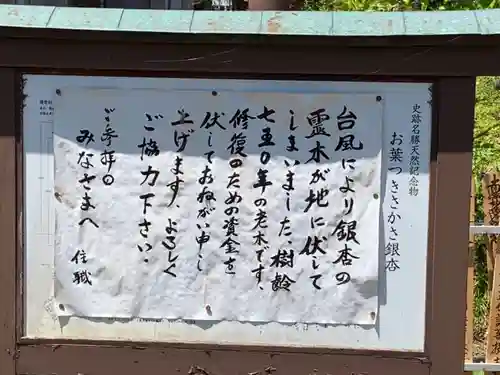 史跡名勝天然記念物
お葉つきさかさ銀杏
台風により銀杏の
霊木が地に伏して
しまいました、樹齢
七五〇年の老木です、
修復のための資金を
伏しておねがい申し
上げます、よろしく
ご協力下さい。
ご参拝の
みなさまへ
住職